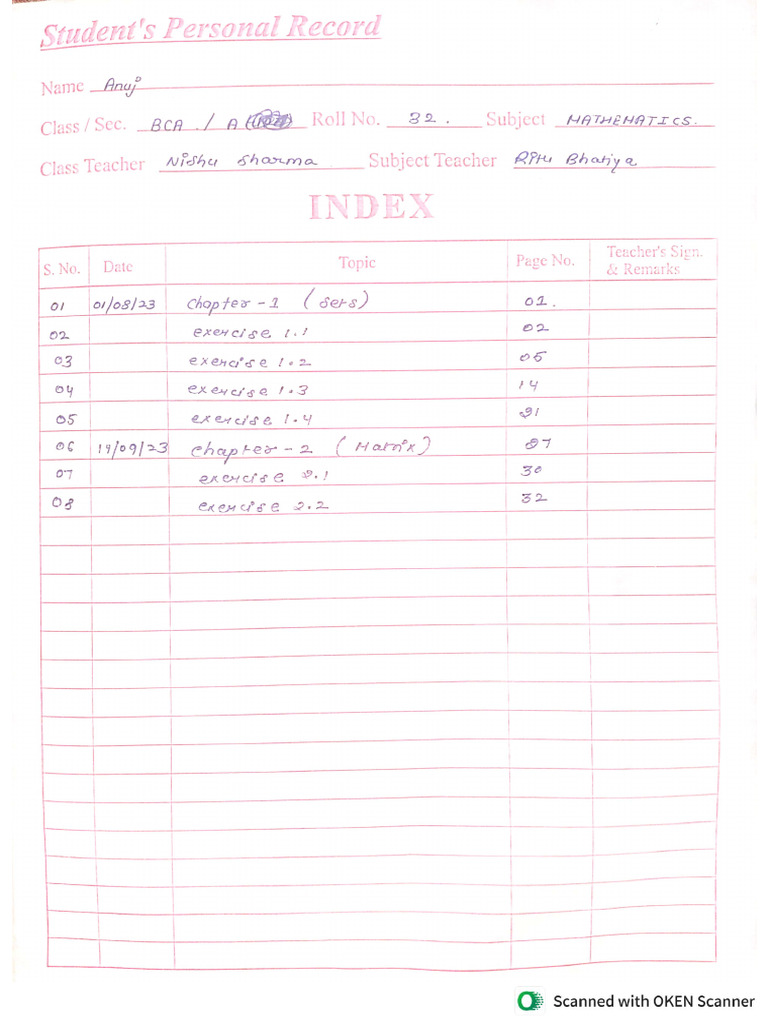 Student's Personal Record
Name Anuj
Class / Sec. BCA / A Roll No. 32. Subject MATHEMATICS.
Class Teacher Nishu Sharma Subject Teacher Ritu Bhatiya
INDEX
S. No. Date Topic Page No. Teacher's Sign. & Remarks
01 01/08/23 Chapter - 1 (Sets) 01.
02 exercise 1.1 02
03 exercise 1.2 05
04 exercise 1.3 14
05 exercise 1.4 21
06 19/09/23 Chapter - 2 (Matrix) 27
07 exercise 2.1 30
08 exercise 2.2 32
Scanned with OKEN Scanner